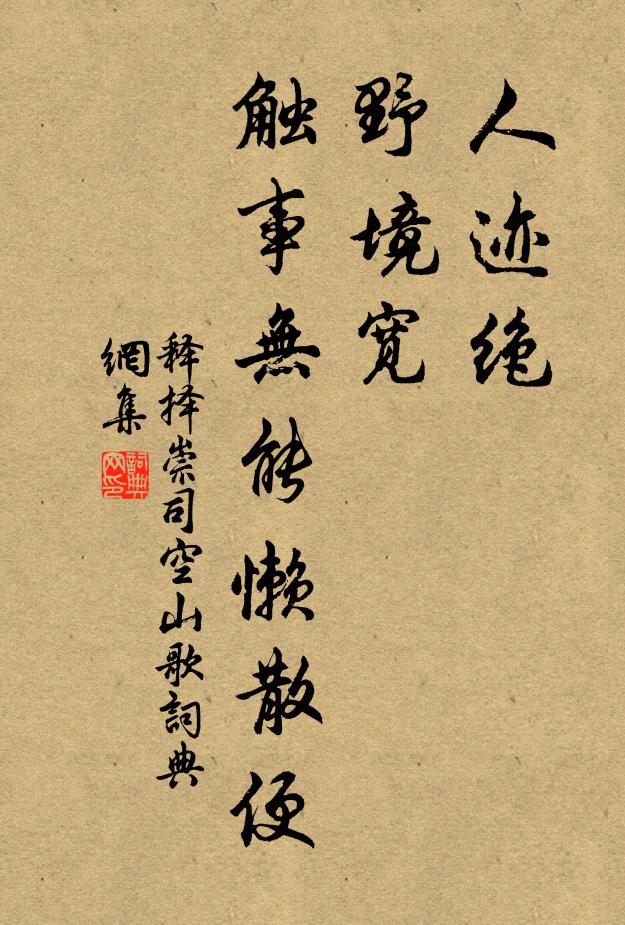 人迹绝
野境宽
触事無能懒散便
释择崇司空山歌詞典
網集
詞典
网印